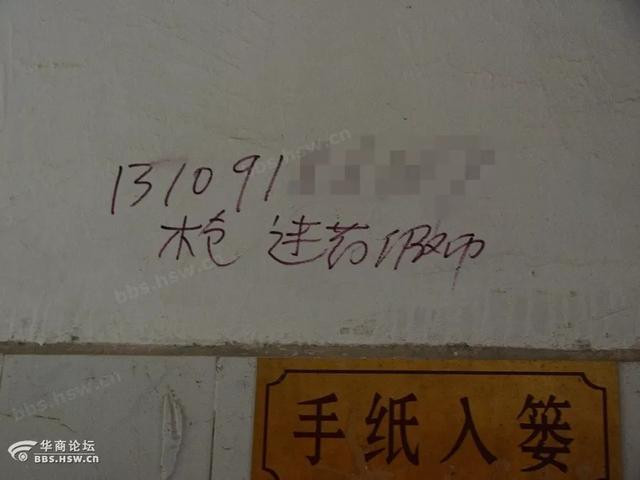 bbs.hsw.cn
131091
枪 迷药假币
bbs.hsw.cn
bbs.hsw.cn
手纸入篓
华商论坛
BBS.HSW.CN